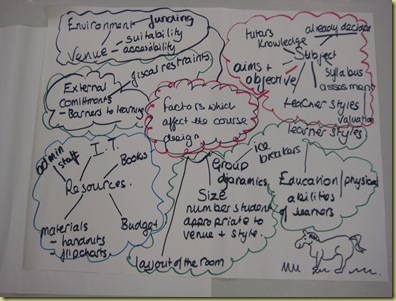 Environment funding
- suitability
Venue - accessibility
fiscal restraints
External
Comittments
- Barriers to learning
Factors which
affect the course
design
tutors
knowledge
already decided
Subject
aims +
objective
Syllabus
+
assessment
teacher styles
valuation
learner styles
admin
staff
I.T.
Books
Resources.
materials
- handouts
- flipcharts.
Budget
Group
dynamics
ice
breakers
Size
number student
appropriate to
venue + style.
layout of the room
Education/physical
abilities
of learners